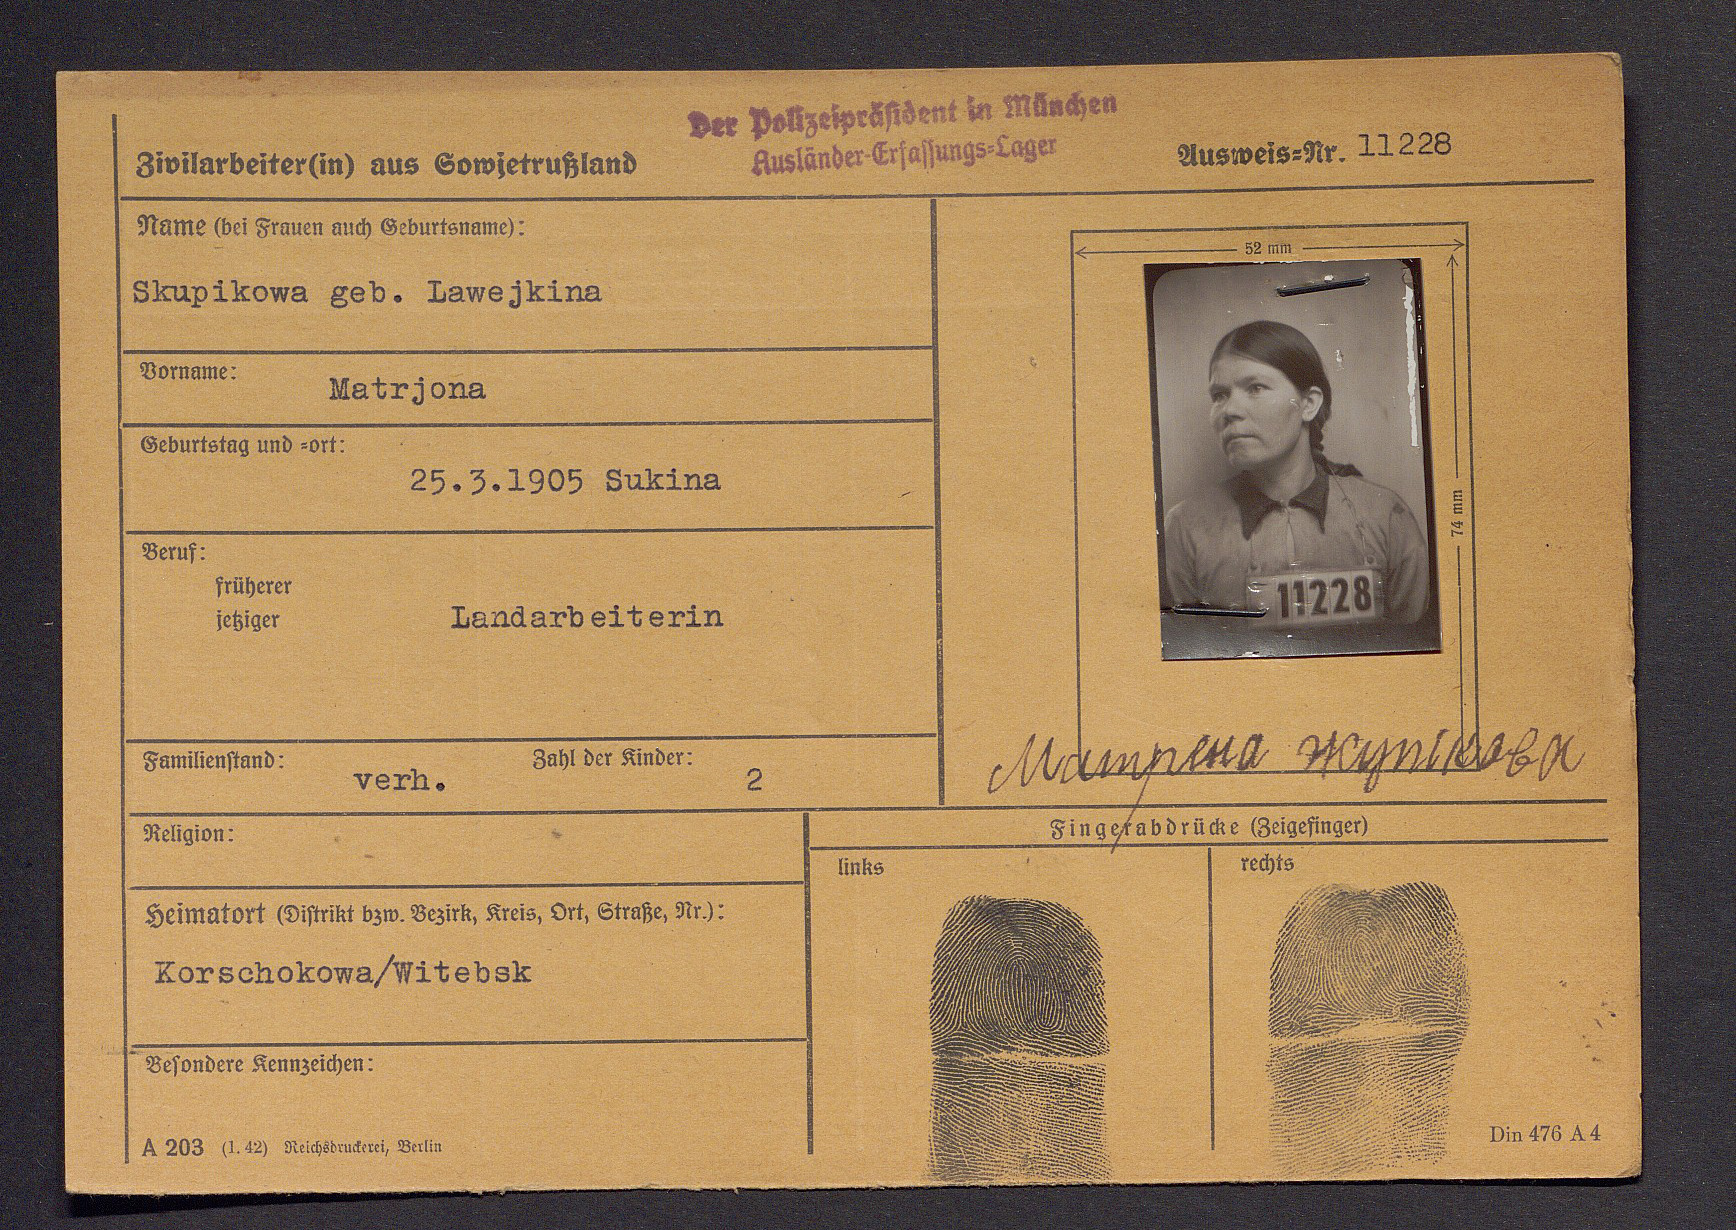 Der Polizeipräsident in München
Ausländer-Erfassungs-Lager
Zivilarbeiter(in) aus Sowjetrußland
Ausweis-Nr. 11228
Name (bei Frauen auch Geburtsname):
Skupikowa geb. Lawejkina
Vorname:
Matrjona
Geburtstag und -ort:
25.3.1905 Sukina
Beruf:
früherer
jetziger
Landarbeiterin
Familienstand:
verh.
Zahl der Kinder:
2
52 mm
74 mm
11228
Матрена
Religion:
Heimatort (Distrikt bzw. Bezirk, Kreis, Ort, Straße, Nr.):
Korschokowa/Witebsk
Besondere Kennzeichen:
Fingerabdrücke (Zeigefinger)
links
rechts
A 203 (1. 42) Reichsdruckerei, Berlin
Din 476 A 4